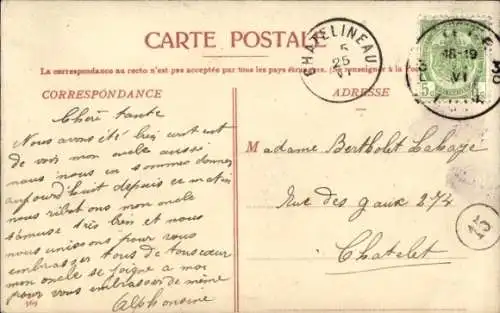 CARTE POSTALE
La correspondance au recto n'est pas acceptée par tous les pays étrangers. (Se renseigner à la Poste)
CORRESPONDANCE
Chère tante
Nous avons été bien
de voir mon oncle aussi
nous nous en sommes donnés
aujourd'huit depuis ce matin
nous mon oncle
s'amuse très bien et nous
nous unissons pour vous
embrasser tous de tous coeur
mon oncle se joigne a moi
pour vous embrasser de même
Alphonsine
369
ADRESSE
Madame Bertholet Lahaye
Rue des gaux 274
Chatelet
CHATELINEAU
5
25
VI
18-19
VI
5
15